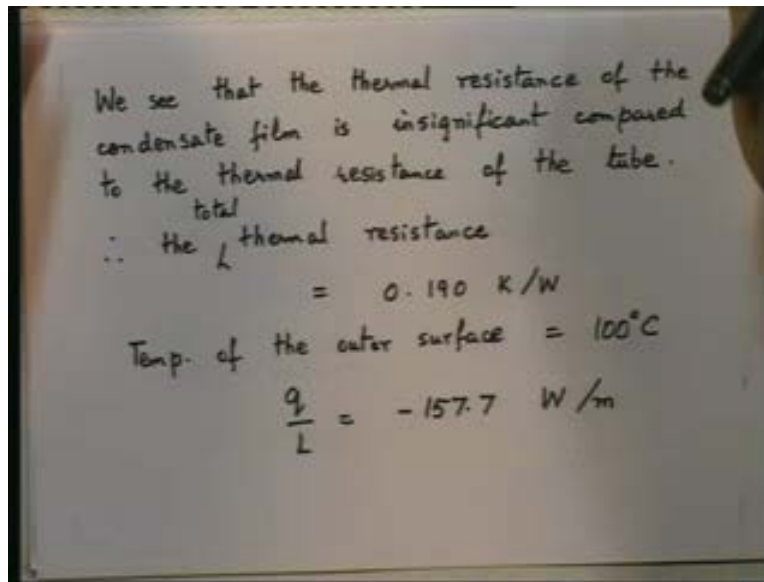 We see that the thermal resistance of the
condensate film is insignificant compared
to the thermal resistance of the tube.
total
∴ the thermal resistance
= 0.190 K/W
Temp. of the outer surface = 100°C
q/L = -157.7 W/m